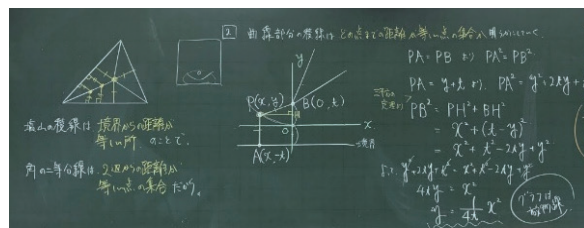 盛山の稜線は 境界からの距離が
等しい所 のことで、
角の二等分線は、2辺からの距離が
等しい点の集合 だから。
2 曲線部分の稜線は どの点までの距離が等しい点の集合か
y
P(x, y)
B(0, t)
H
O
x
A(x, -t)
境界
PA = PB より PA² = PB²
PA = y+t より、PA² = y²+2ty+t²
三平方の定理より
PB² = PH² + BH²
= x² + (t - y)²
= x² + t² - 2ty + y²
よって y²+2ty+t² = x²+t²-2ty+y²
4ty = x²
y = 1/4t x²
グラフは放物線